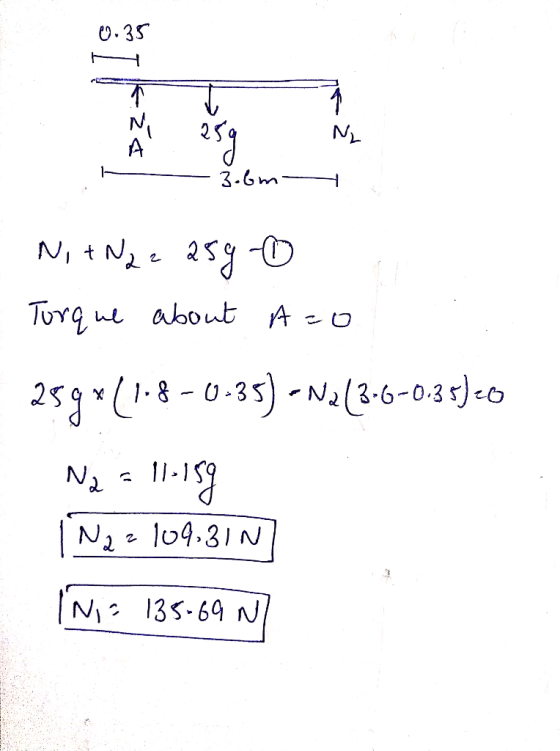 0.35
N₁ 25g N₂
A
3.6m
N₁ + N₂ = 25g -①
Torque about A = 0
25g × (1.8 - 0.35) - N₂(3.6-0.35)=0
N₂ = 11.15g
N₂ = 109.31 N
N₁ = 135.69 N